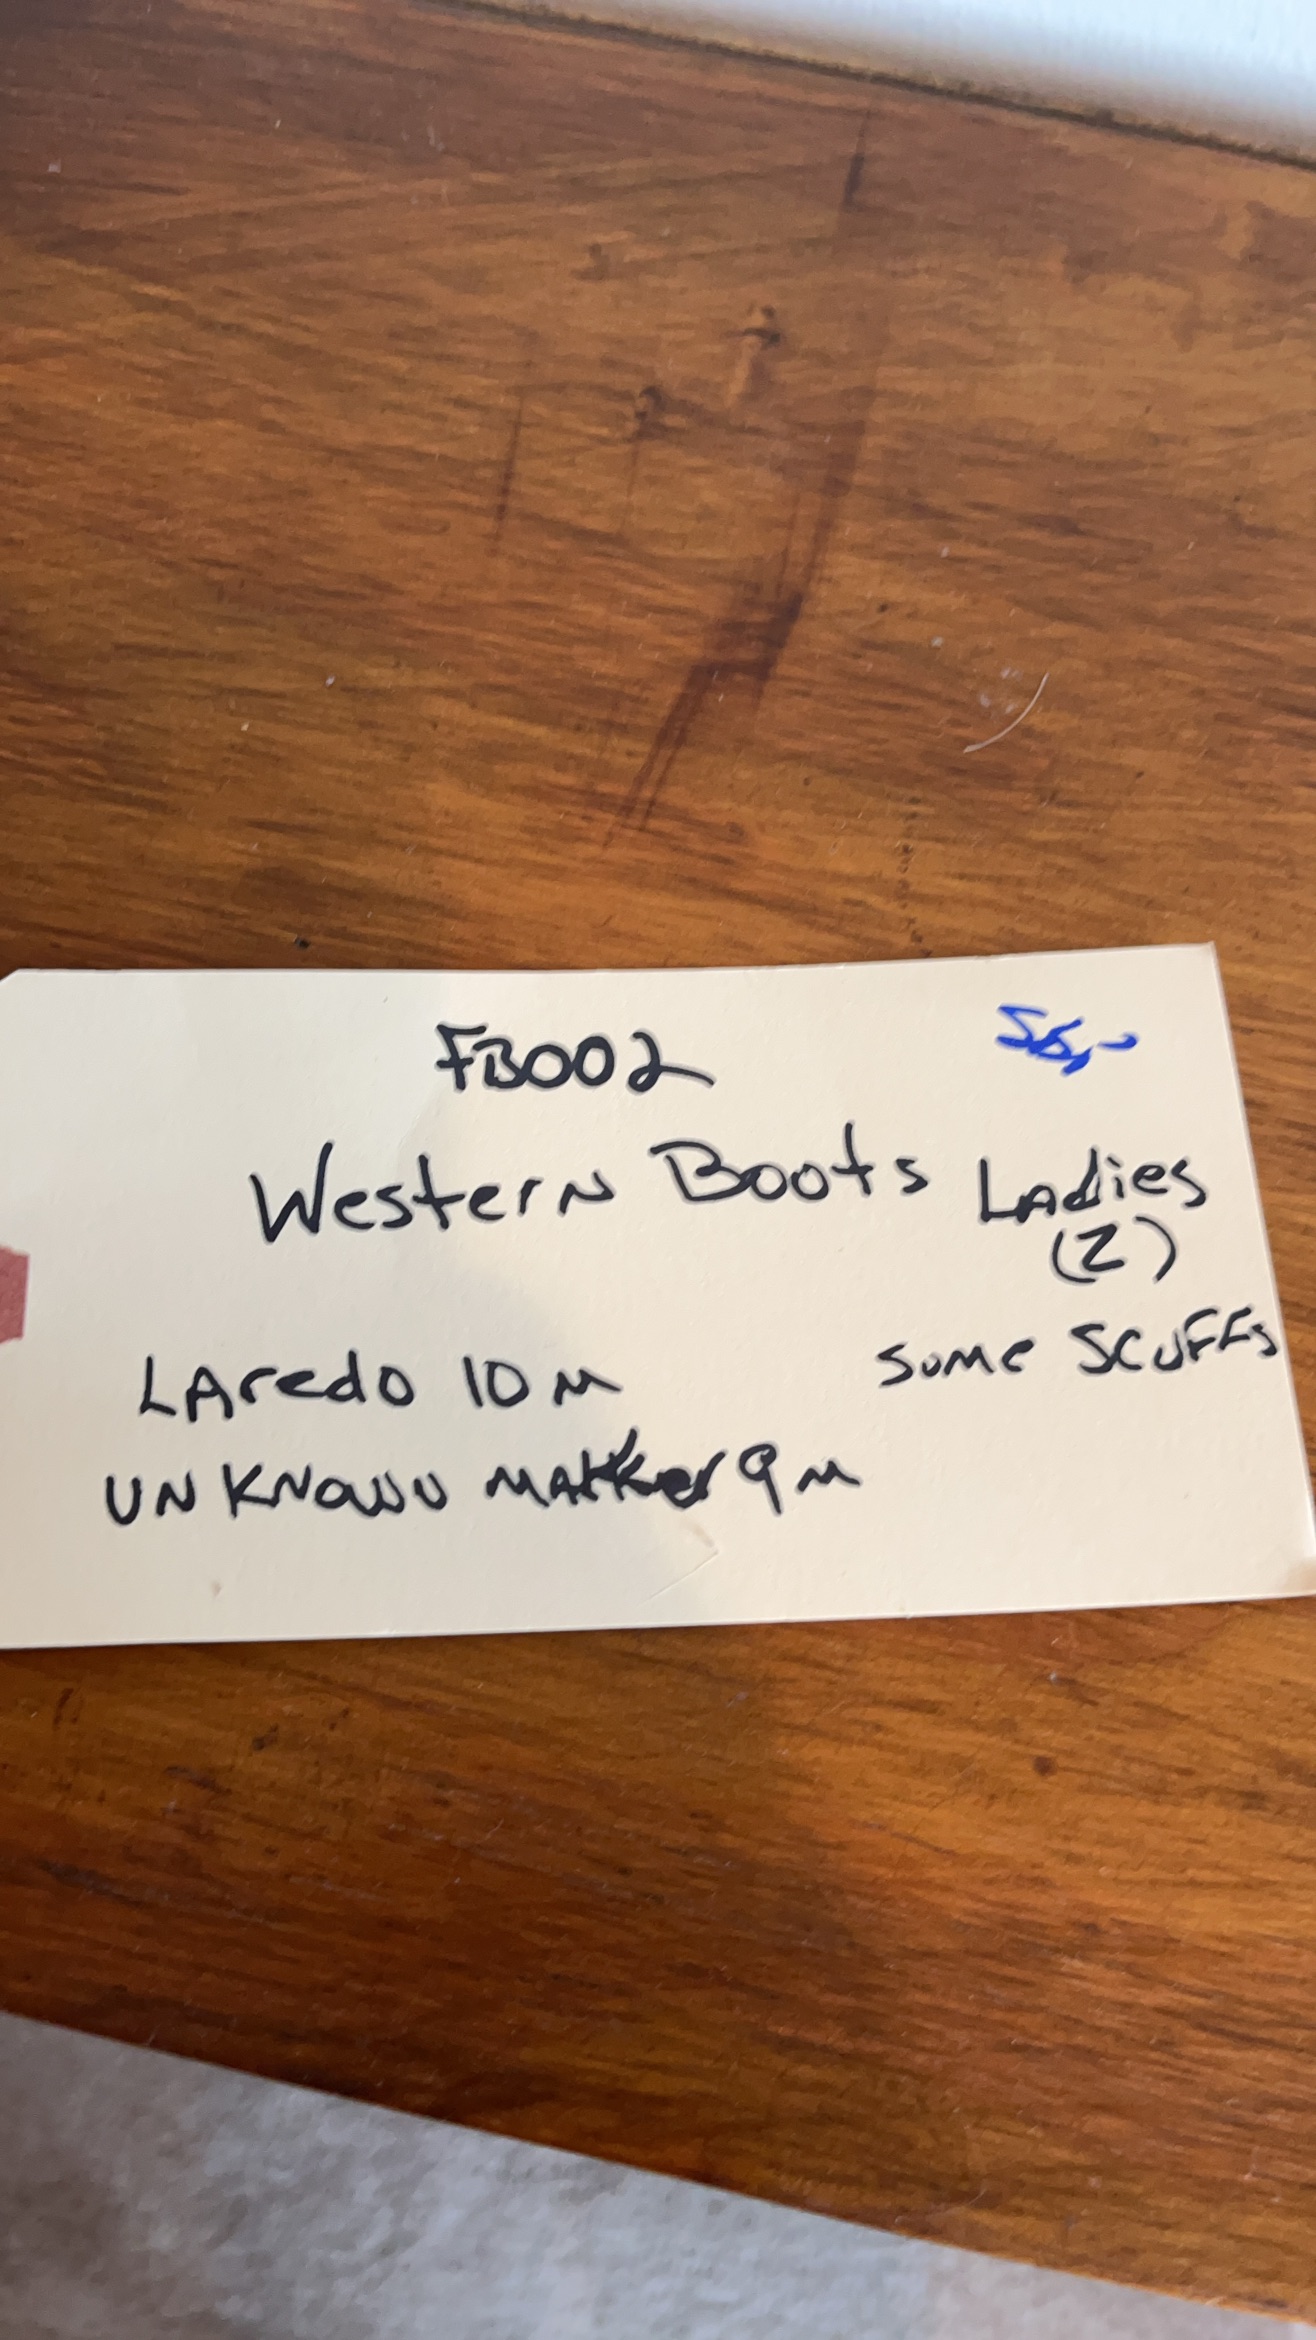 FB002
Western Boots Ladies
(2)
some scuffs
Laredo 10 M
unknown marker 9 M